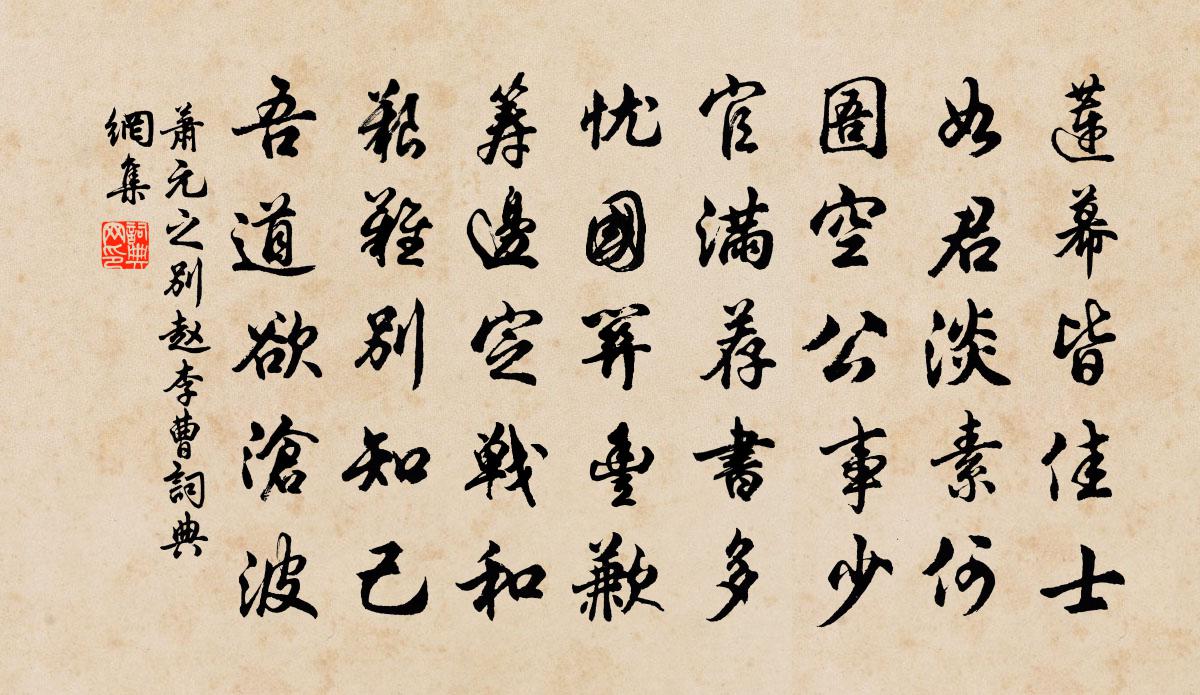 蓮幕皆佳士
如君淡素何
圄空公事少
官滿荐書多
忧國関豐歉
筹邊定戰和
艱難別知己
吾道欲滄波
蕭元之別赵李曹詞典
網集
詞典网印